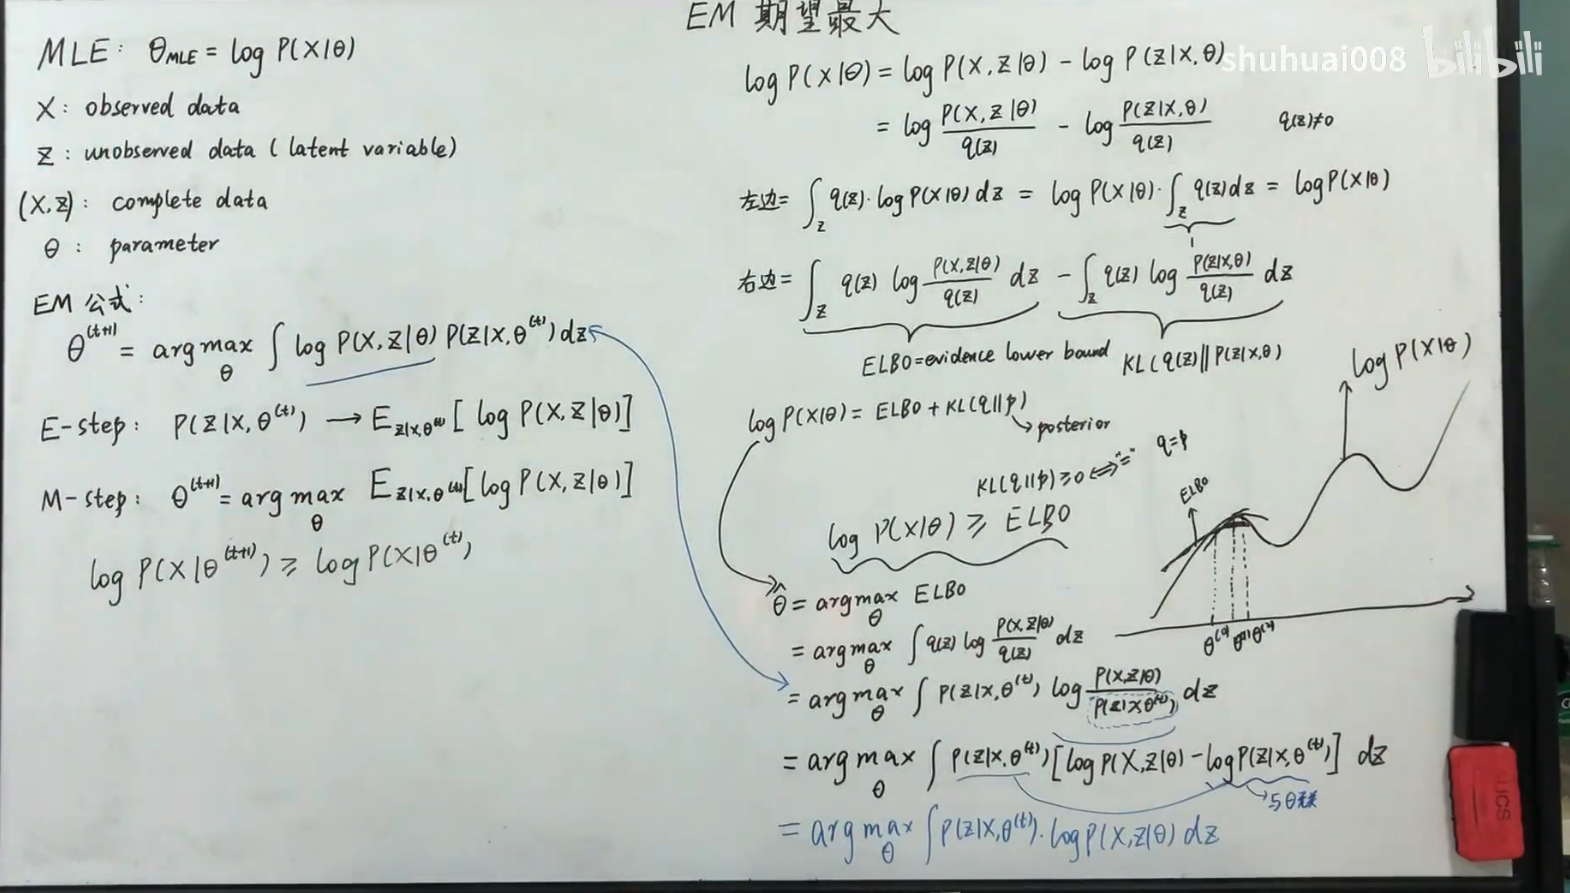 EM 期望最大
MLE: θ_MLE = log P(X|θ)
X: observed data
Z: unobserved data (latent variable)
(X,Z): complete data
θ: parameter
EM 公式:
θ^(t+1) = arg max_θ ∫ log P(X,Z|θ) P(Z|X,θ^(t)) dz
E-step: P(Z|X,θ^(t)) → E_{Z|X,θ^(t)} [log P(X,Z|θ)]
M-step: θ^(t+1) = arg max_θ E_{Z|X,θ^(t)} [log P(X,Z|θ)]
log P(X|θ^(t+1)) ≥ log P(X|θ^(t))
shuhuai008 bilibili
log P(X|θ) = log P(X,Z|θ) - log P(Z|X,θ)
= log P(X,Z|θ)/q(z) - log P(Z|X,θ)/q(z) q(z)≠0
左边 = ∫_z q(z)·log P(X|θ) dz = log P(X|θ)·∫_z q(z) dz = log P(X|θ)
1
右边 = ∫_z q(z) log P(X,Z|θ)/q(z) dz - ∫_z q(z) log P(Z|X,θ)/q(z) dz
ELBO = evidence lower bound KL(q(z)||P(Z|X,θ))
log P(X|θ) = ELBO + KL(q||p)
→ posterior
KL(q||p) ≥ 0 ⟺ "=" q=p
log P(X|θ) ≥ ELBO
θ̂ = arg max_θ ELBO
= arg max_θ ∫ q(z) log P(X,Z|θ)/q(z) dz
= arg max_θ ∫ P(Z|X,θ^(t)) log P(X,Z|θ)/P(Z|X,θ^(t)) dz
= arg max_θ ∫ P(Z|X,θ^(t)) [log P(X,Z|θ) - log P(Z|X,θ^(t))] dz
→ 与θ无关
= arg max_θ ∫ P(Z|X,θ^(t))·log P(X,Z|θ) dz
log P(X|θ)
ELBO
UCS